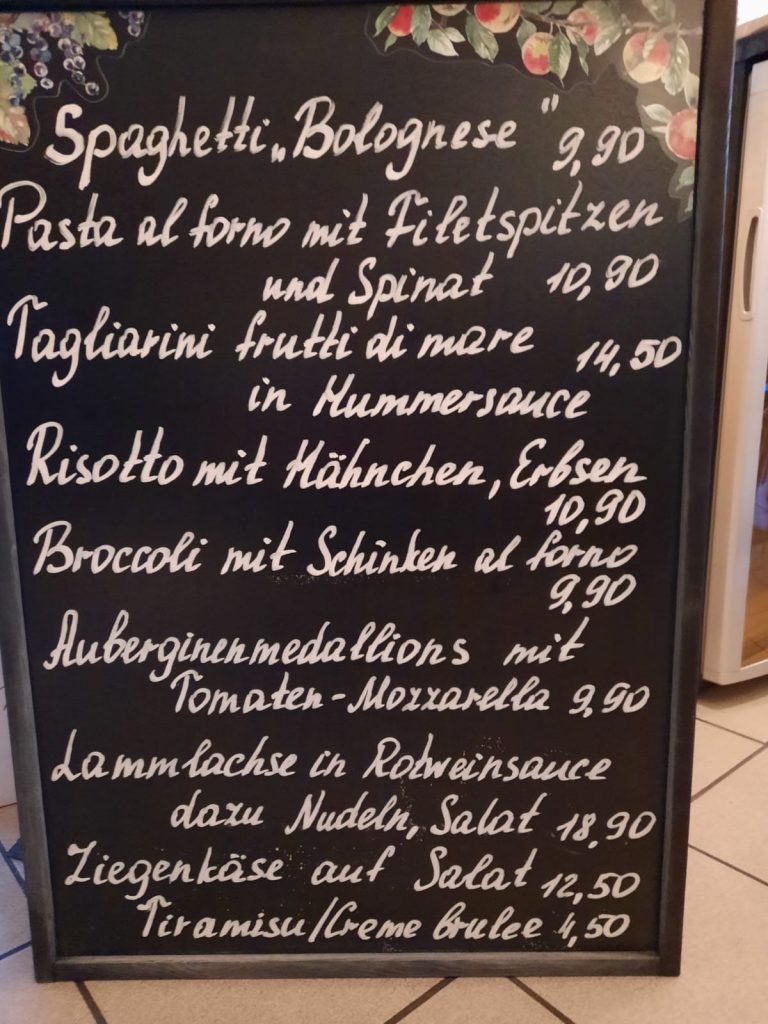 Spaghetti „Bolognese" 9,90
Pasta al forno mit Filetspitzen
und Spinat 10,90
Tagliarini frutti di mare 14,50
in Hummersauce
Risotto mit Hähnchen, Erbsen
10,90
Broccoli mit Schinken al forno
9,90
Auberginenmedallions mit
Tomaten-Mozzarella 9,90
Lammlachse in Rotweinsauce
dazu Nudeln, Salat 18,90
Ziegenkäse auf Salat 12,50
Tiramisu/Creme brulee 4,50